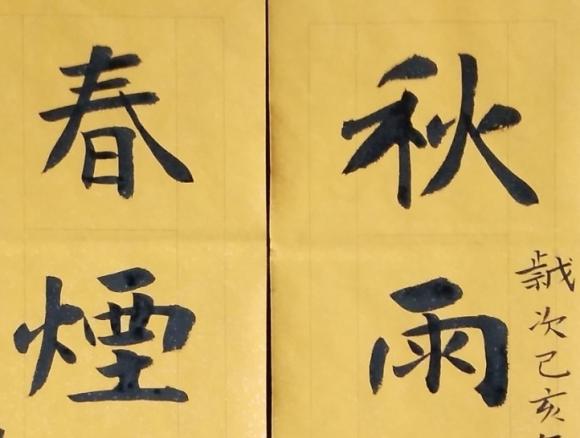 歲次己亥
秋雨
春煙